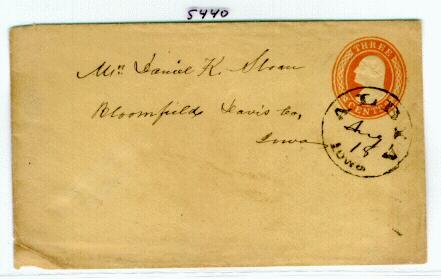 5440
THREE
CENTS
Mr. Daniel K. Sloan
Bloomfield Davis Co,
Iowa
Aug
18
IOWA